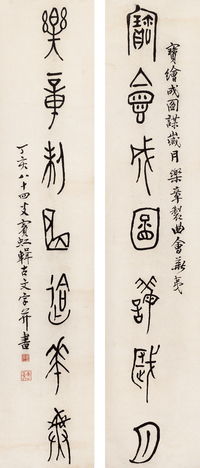 寶繪成圖謀歲月 樂章製曲會華夷
寶會成圖謀歲月
樂章制曲會華夷
丁亥八十四叟賓虹輯古文字并書